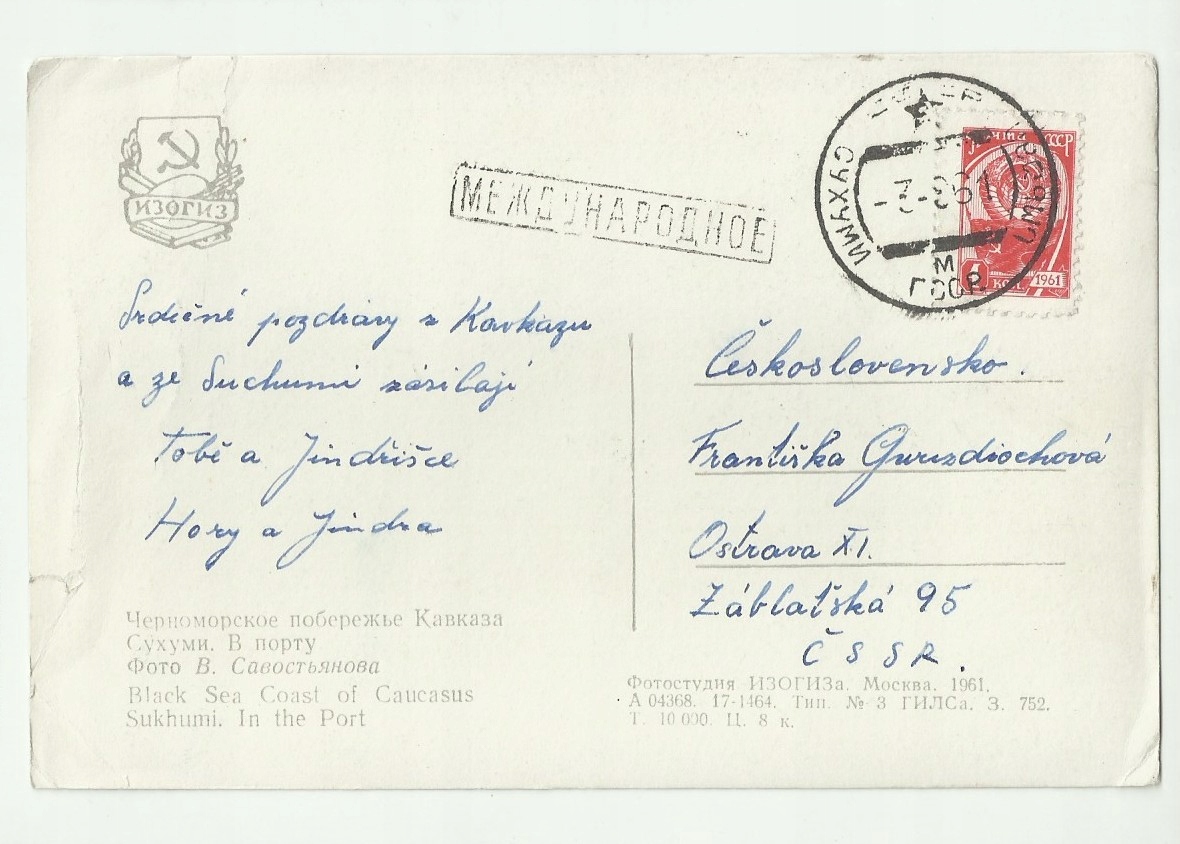 ИЗОГИЗ
МЕЖДУНАРОДНОЕ
СУХУМИ
М
ГССР
почта СССР
коп. 1961
Srdečné pozdravy z Kavkazu
a ze Suchumi zásilají
Tobě a Jindřišce
Hory a Jindra
Československo.
Františka
Ostrava XI.
Záblatská 95
ČSSR.
Черноморское побережье Кавказа
Сухуми. В порту
Фото В. Савостьянова
Black Sea Coast of Caucasus
Sukhumi. In the Port
Фотостудия ИЗОГИЗа. Москва. 1961.
А 04368. 17-1464. Тип. № 3 ГИЛСа. З. 752.
Т. 10 000. Ц. 8 к.